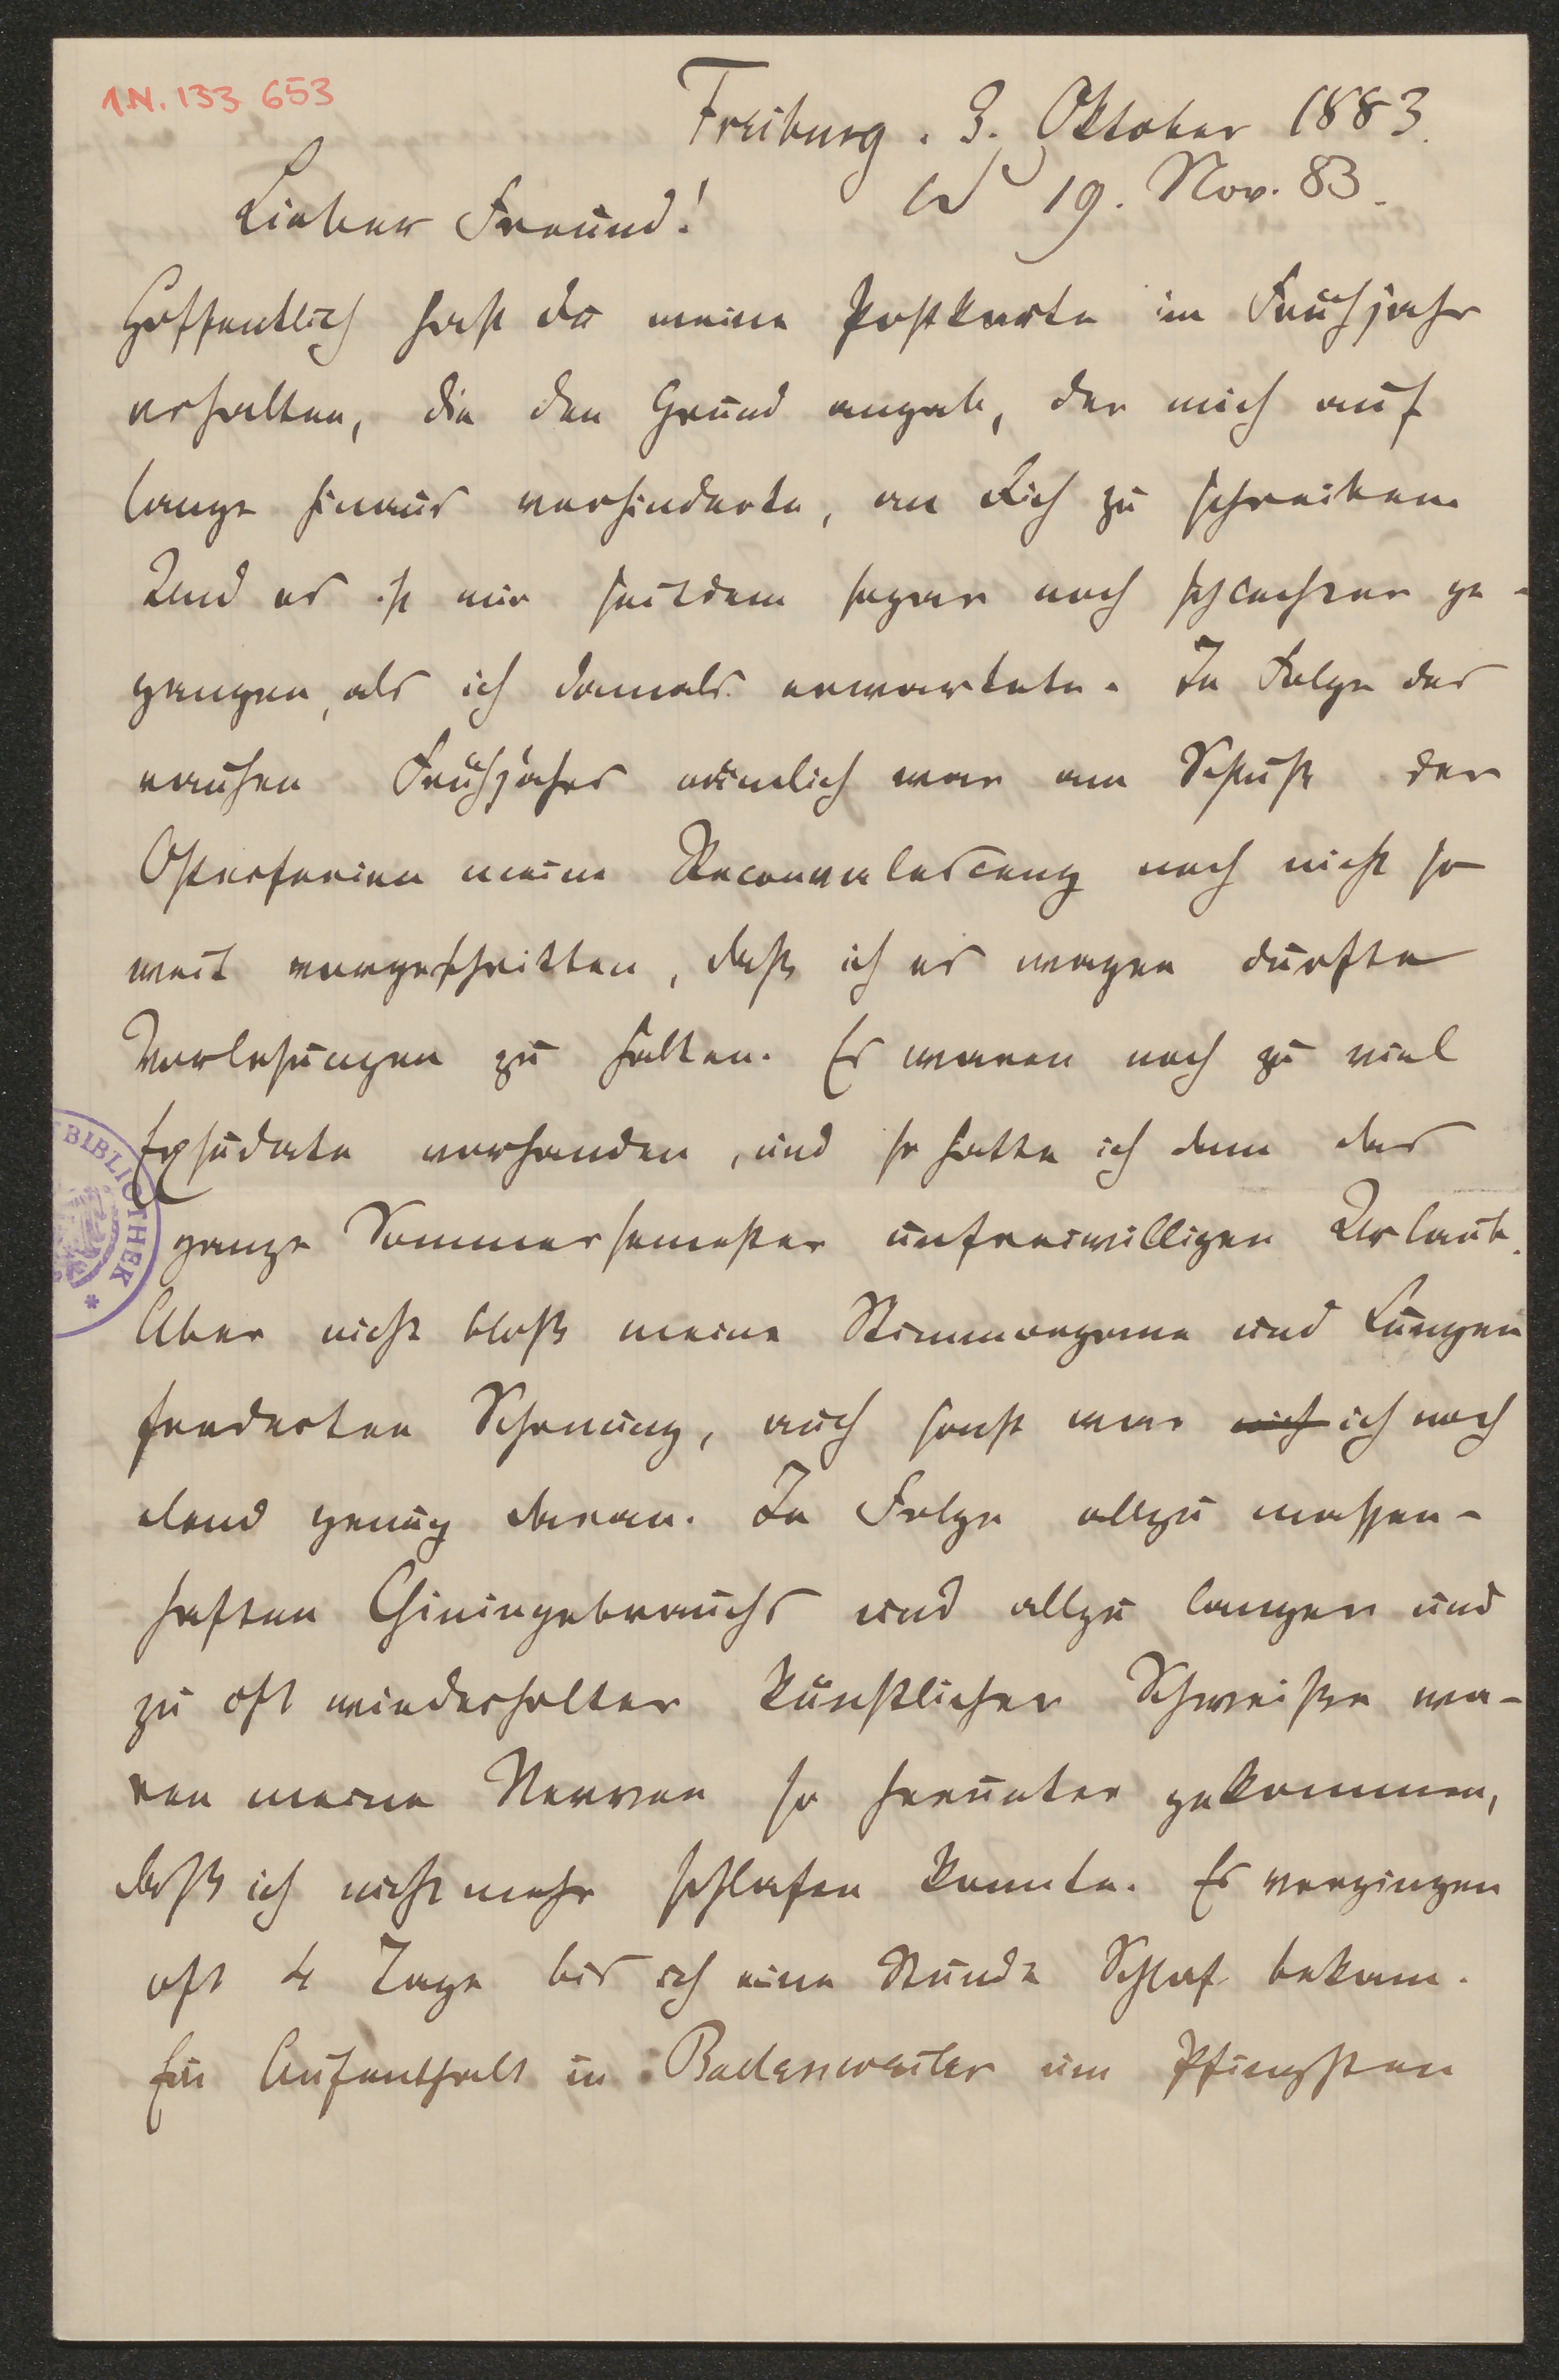 I.N. 133 653
Freiburg. 3. Oktober 1883.
19. Nov. 83.
Lieber Freund!
Hoffentlich hast du meine Postkarte im Frühjahr
erhalten, die den Grund angab, der mich auf
lange hinaus verhinderte, an Dich zu schreiben.
Und es ist mir seitdem sogar noch schlechter ge-
gangen, als ich damals erwartete. In Folge des
rauhen Frühjahrs nämlich war am Schluß der
Osterferien meine Reconvalescenz noch nicht so
weit vorgeschritten, daß ich es wagen durfte
Vorlesungen zu halten. Es waren noch zu viel
Exsudate vorhanden, und so hatte ich denn das
ganze Sommersemester unfreiwilligen Urlaub.
Aber nicht bloß meine Stimmorgane und Lungen
forderten Schonung, auch sonst war mich ich noch
elend genug daran. In Folge allzu massen-
haften Chiningebrauchs und allzu langer und
zu oft wiederholter künstlicher Schweiße wa-
ren meine Nerven so herunter gekommen,
daß ich nicht mehr schlafen konnte. Es vergingen
oft 4 Tage bis ich eine Stunde Schlaf bekam.
Ein Aufenthalt in Badenweiler um Pfingsten
BIBLIOTHEK